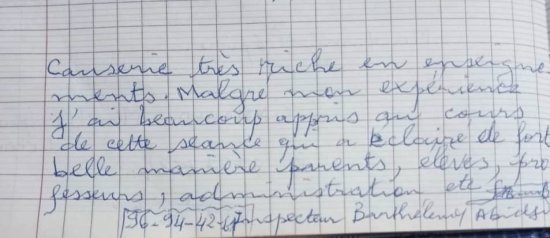 Causerie très riche en enseigne
ments. Malgré mon expérience
j'ai beaucoup appris au cours
de cette séance qui a éclairé de fort
belle manière parents, élèves, pro
fesseurs, administration etc
96-94-42-67 Inspecteur Barthelemy